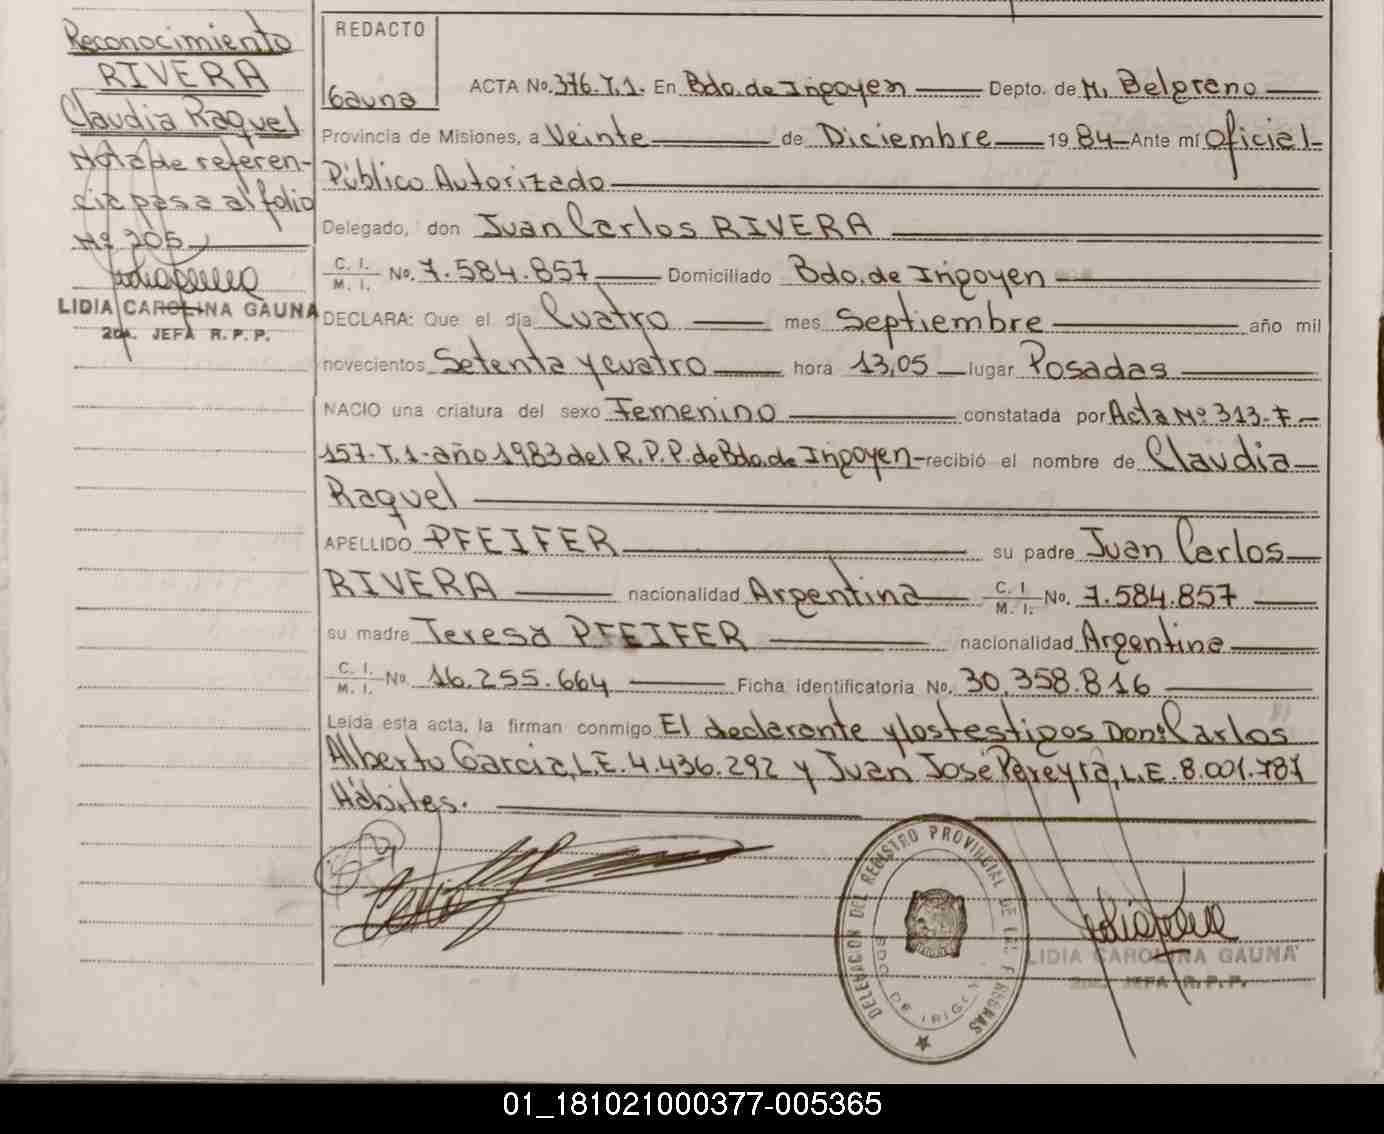 Reconocimiento
RIVERA
Claudia Raquel
Nota de referen-
cia pasa al folio
Nº 205
LIDIA CAROLINA GAUNA
2da. JEFA R. P. P.
REDACTO
Gauna
ACTA No. 376. T. 1. En Bdo. de Irigoyen Depto. de M. Belgrano
Provincia de Misiones, a Veinte de Diciembre 19 84 Ante mí Oficial
Público Autorizado
Delegado, don Juan Carlos RIVERA
C. I. M. I. No. 7.584.857 Domiciliado Bdo. de Irigoyen
DECLARA: Que el día Cuatro mes Septiembre año mil
novecientos Setenta y cuatro hora 13,05 lugar Posadas
NACIO una criatura del sexo Femenino constatada por Acta Nº 313-F-
157-T.1-año 1983 del R.P.P. de Bdo. de Irigoyen- recibió el nombre de Claudia
Raquel
APELLIDO PFEIFER su padre Juan Carlos
RIVERA nacionalidad Argentina C. I. M. I. No. 7.584.857
su madre Teresa PFEIFER nacionalidad Argentina
C. I. M. I. No. 16.255.664 Ficha identificatoria No. 30.358.816
Leída esta acta, la firman conmigo El declarante y los testigos Don: Carlos
Alberto Garcia, L.E. 4.436.292 y Juan José Pereyra, L.E. 8.001.787
Hábiles.
DELEGACION DEL REGISTRO PROVINCIAL DE LAS PERSONAS
BDO. DE IRIGOYEN
LIDIA CAROLINA GAUNA
2da. JEFA R. P. P.
01_181021000377-005365